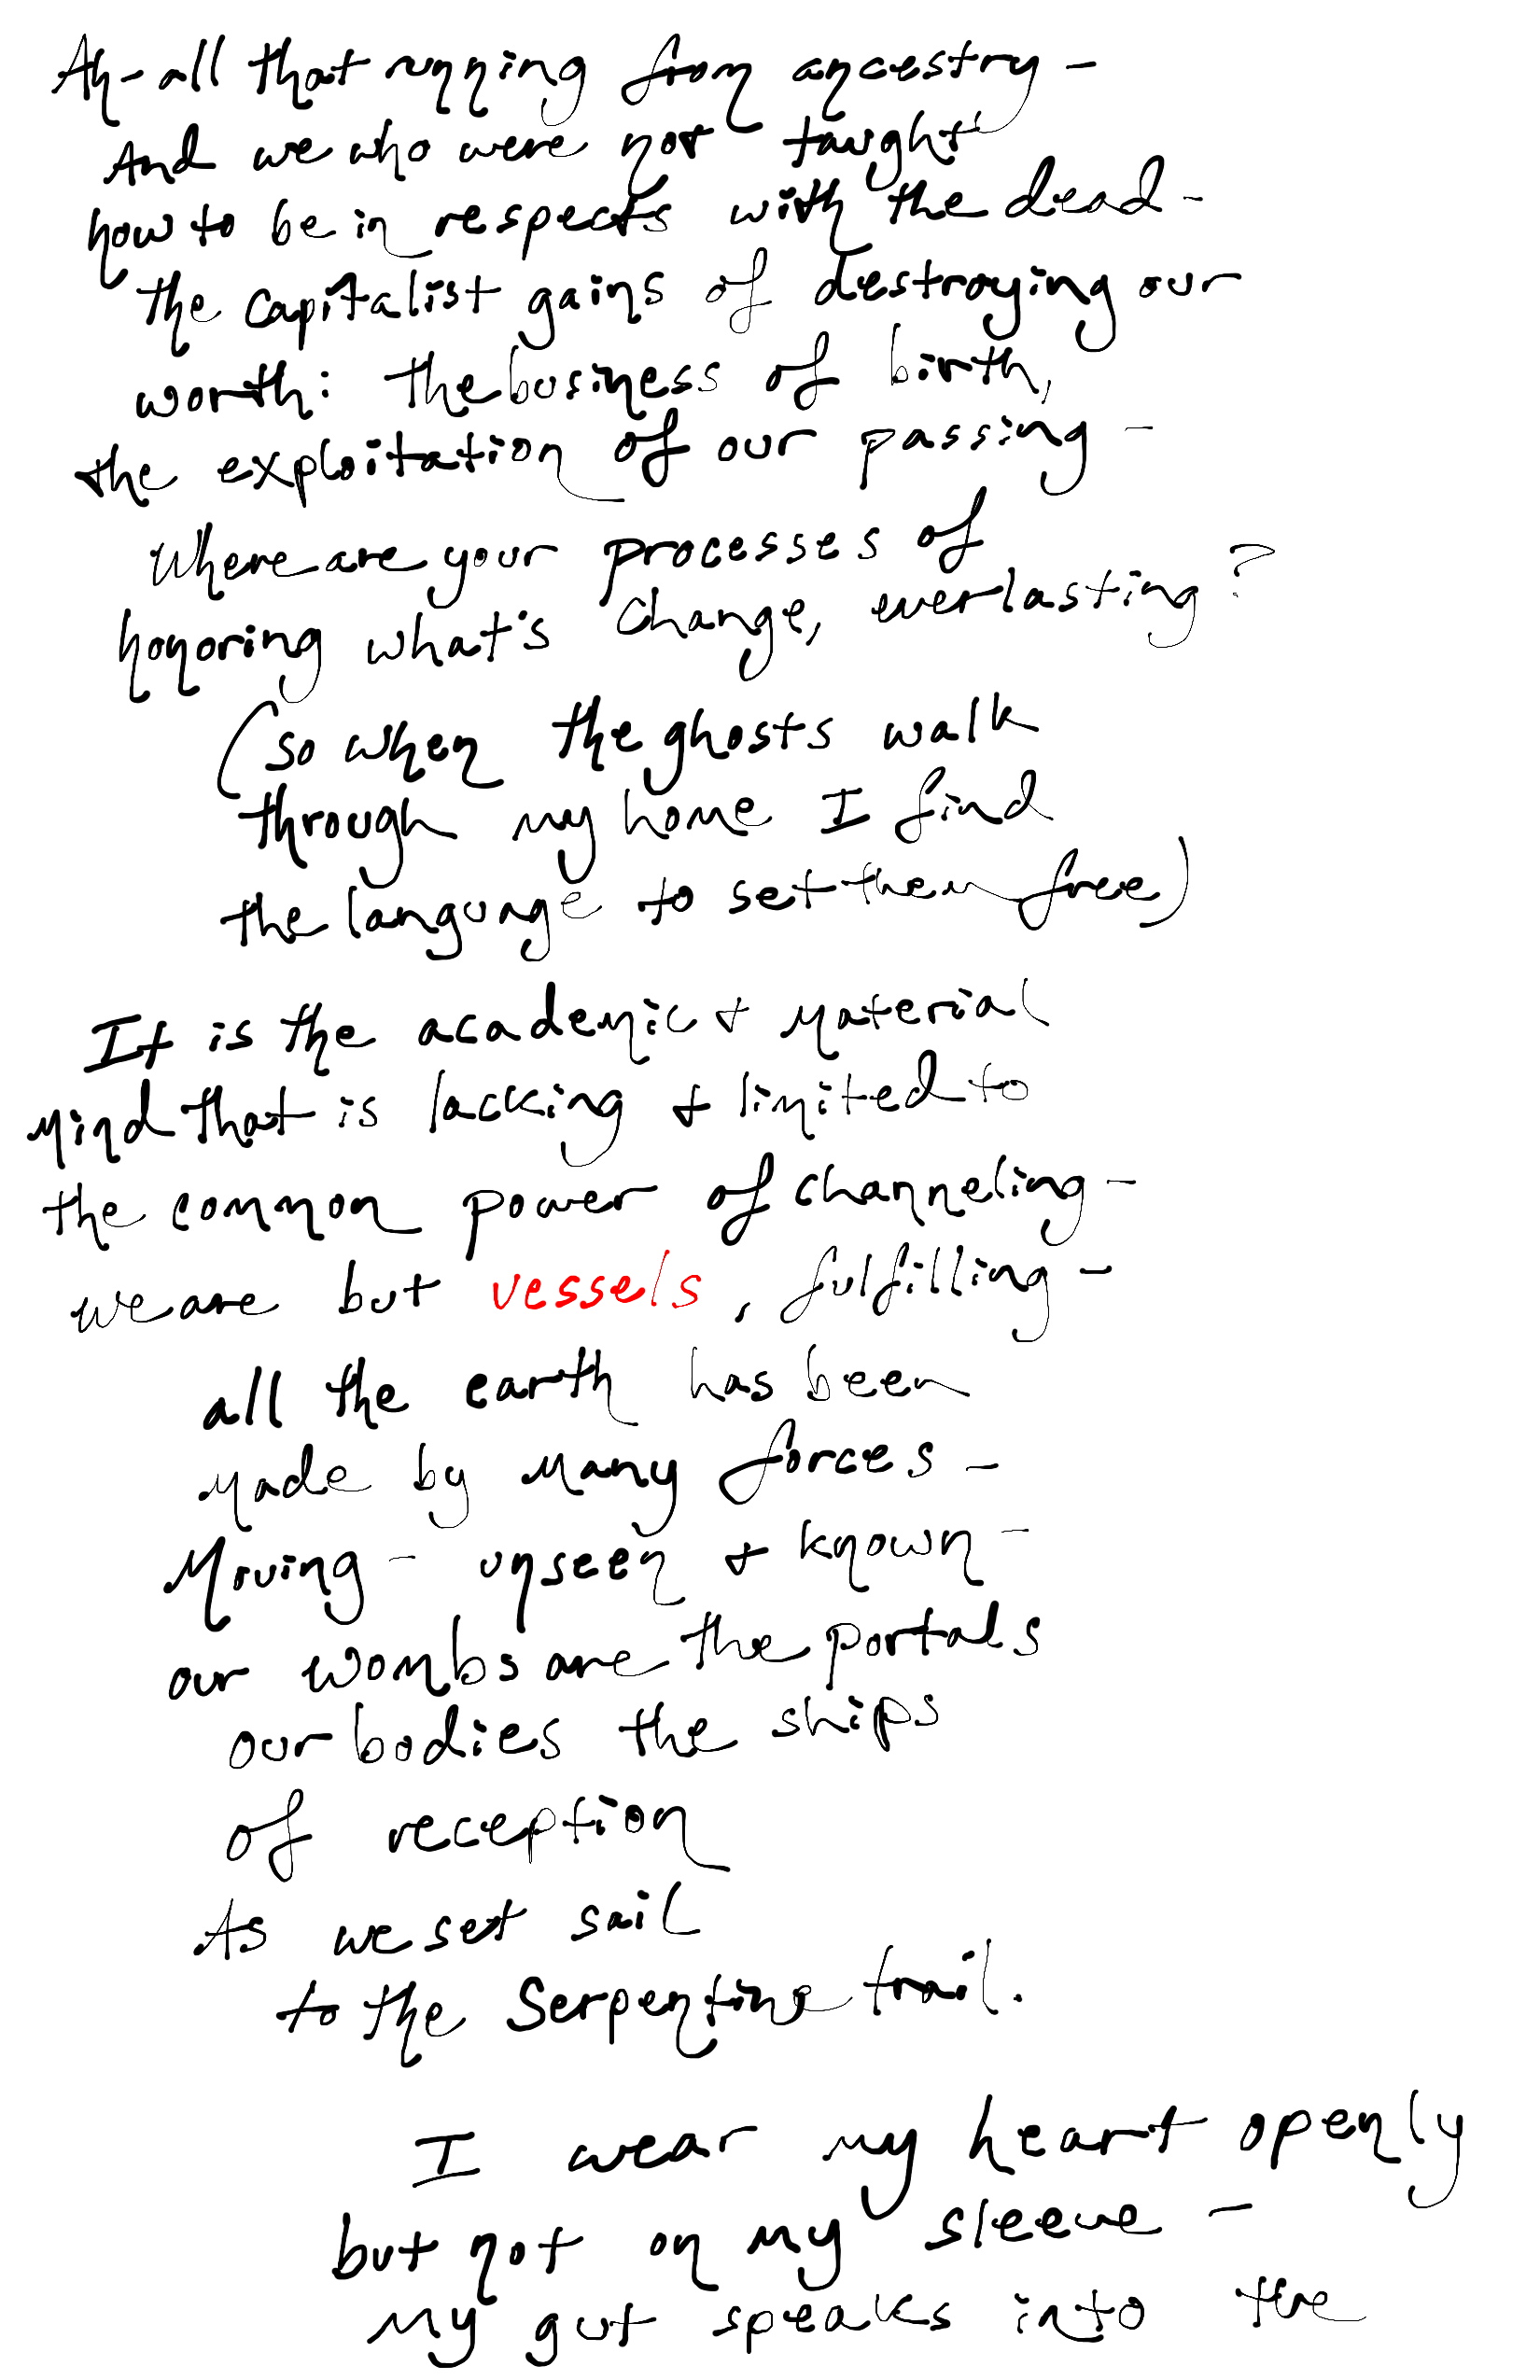 Ah - all that running from ancestry -
And we who were not taught
how to be in respects with the dead -
the capitalist gains of destroying our
worth: the business of birth,
the exploitation of our passing -
Where are your processes of
honoring what's change, everlasting?
(so when the ghosts walk
through my home I find
the language to set them free)
It is the academic + material
mind that is lacking + limited to
the common power of channeling -
we are but vessels, fulfilling -
all the earth has been
made by many forces -
Moving - unseen + known -
our wombs are the portals
our bodies the ships
of reception
As we set sail
to the Serpentine trail.
I wear my heart openly
but not on my sleeve -
my gut speaks into the